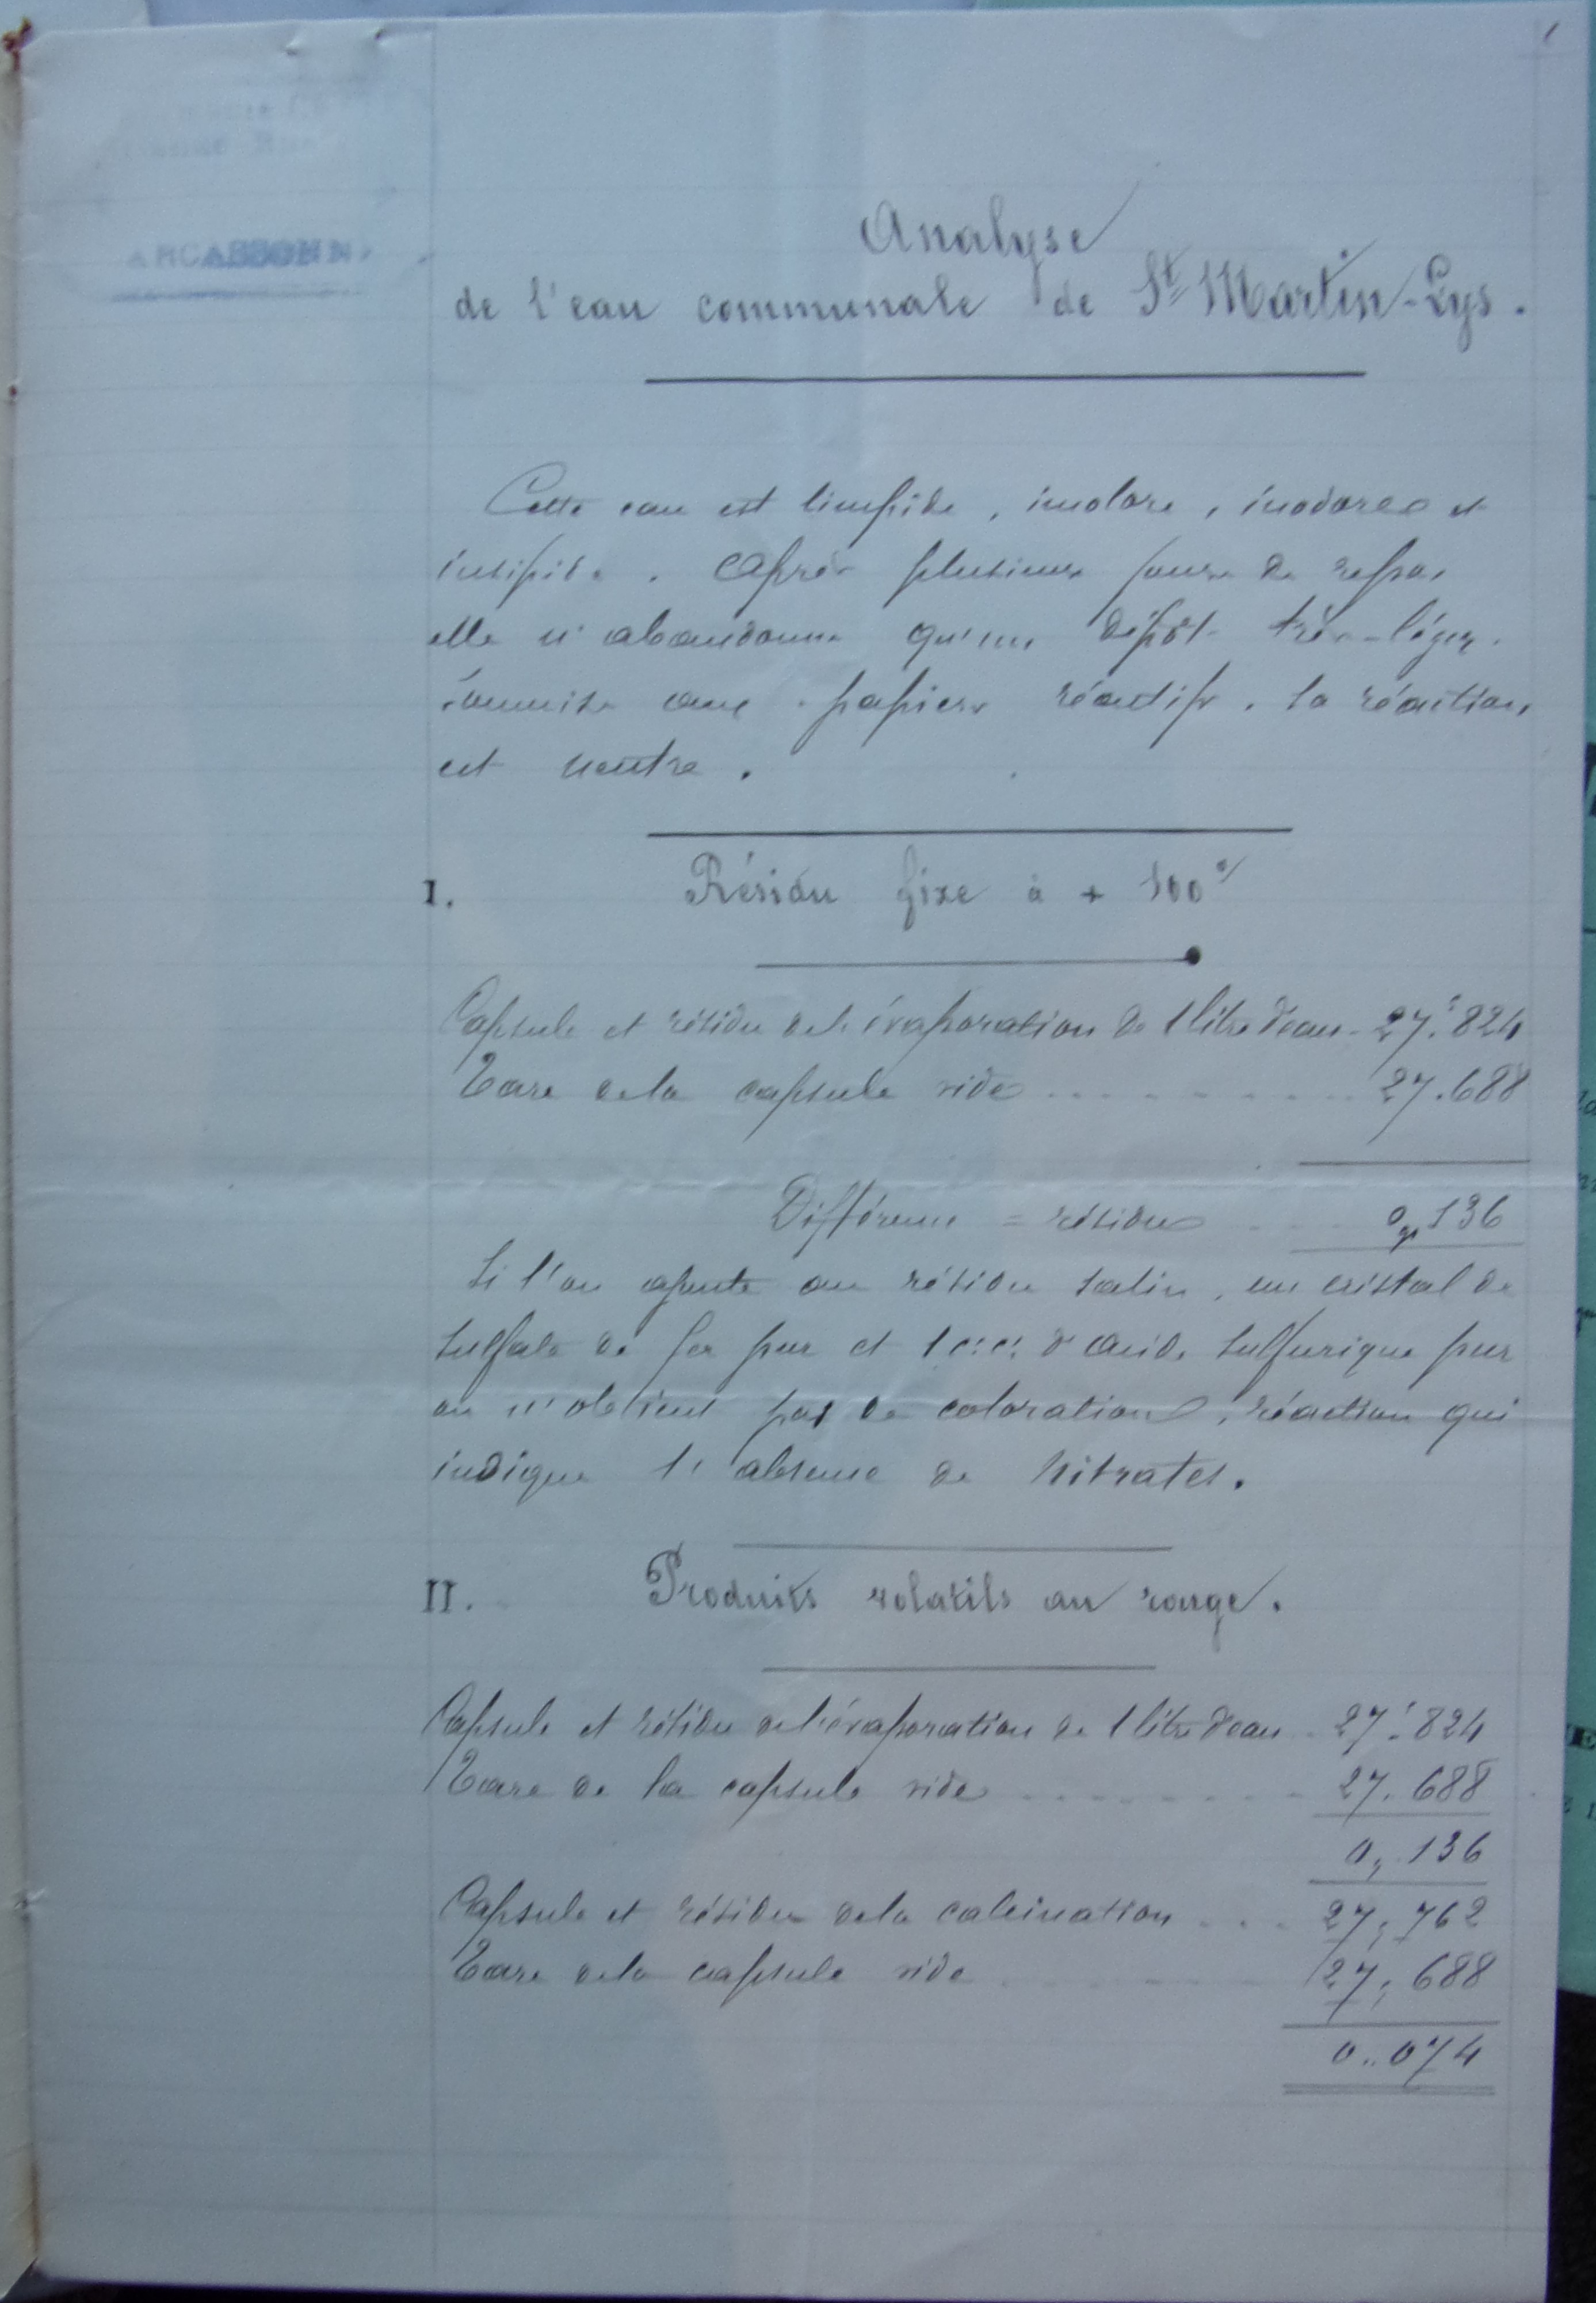 1
ARCASSONN
Analyse
de l'eau communale de St Martin-Lys.
Cette eau est limpide, incolore, inodore et
insipide. Après plusieurs jours de repos
elle n'abandonne qu'un dépôt très-léger.
Soumise aux papiers réactifs, la réaction
est neutre.
I. Résidu fixe à + 100°
Capsule et résidu de l'évaporation de 1 litre d'eau 27g824
Tare de la capsule vide .......... 27.688
Différence = résidu .... 0gr,136
Si l'on ajoute au résidu salin, un cristal de
sulfate de fer pur et 1 c.c. d'acide sulfurique pur
on n'obtient pas de coloration, réaction qui
indique l'absence de Nitrates.
II. Produits volatils au rouge.
Capsule et résidu de l'évaporation de 1 litre d'eau .. 27.824
Tare de la capsule vide .......... 27.688
0,136
Capsule et résidu de la calcination .... 27,762
Tare de la capsule vide .......... 27,688
0,074